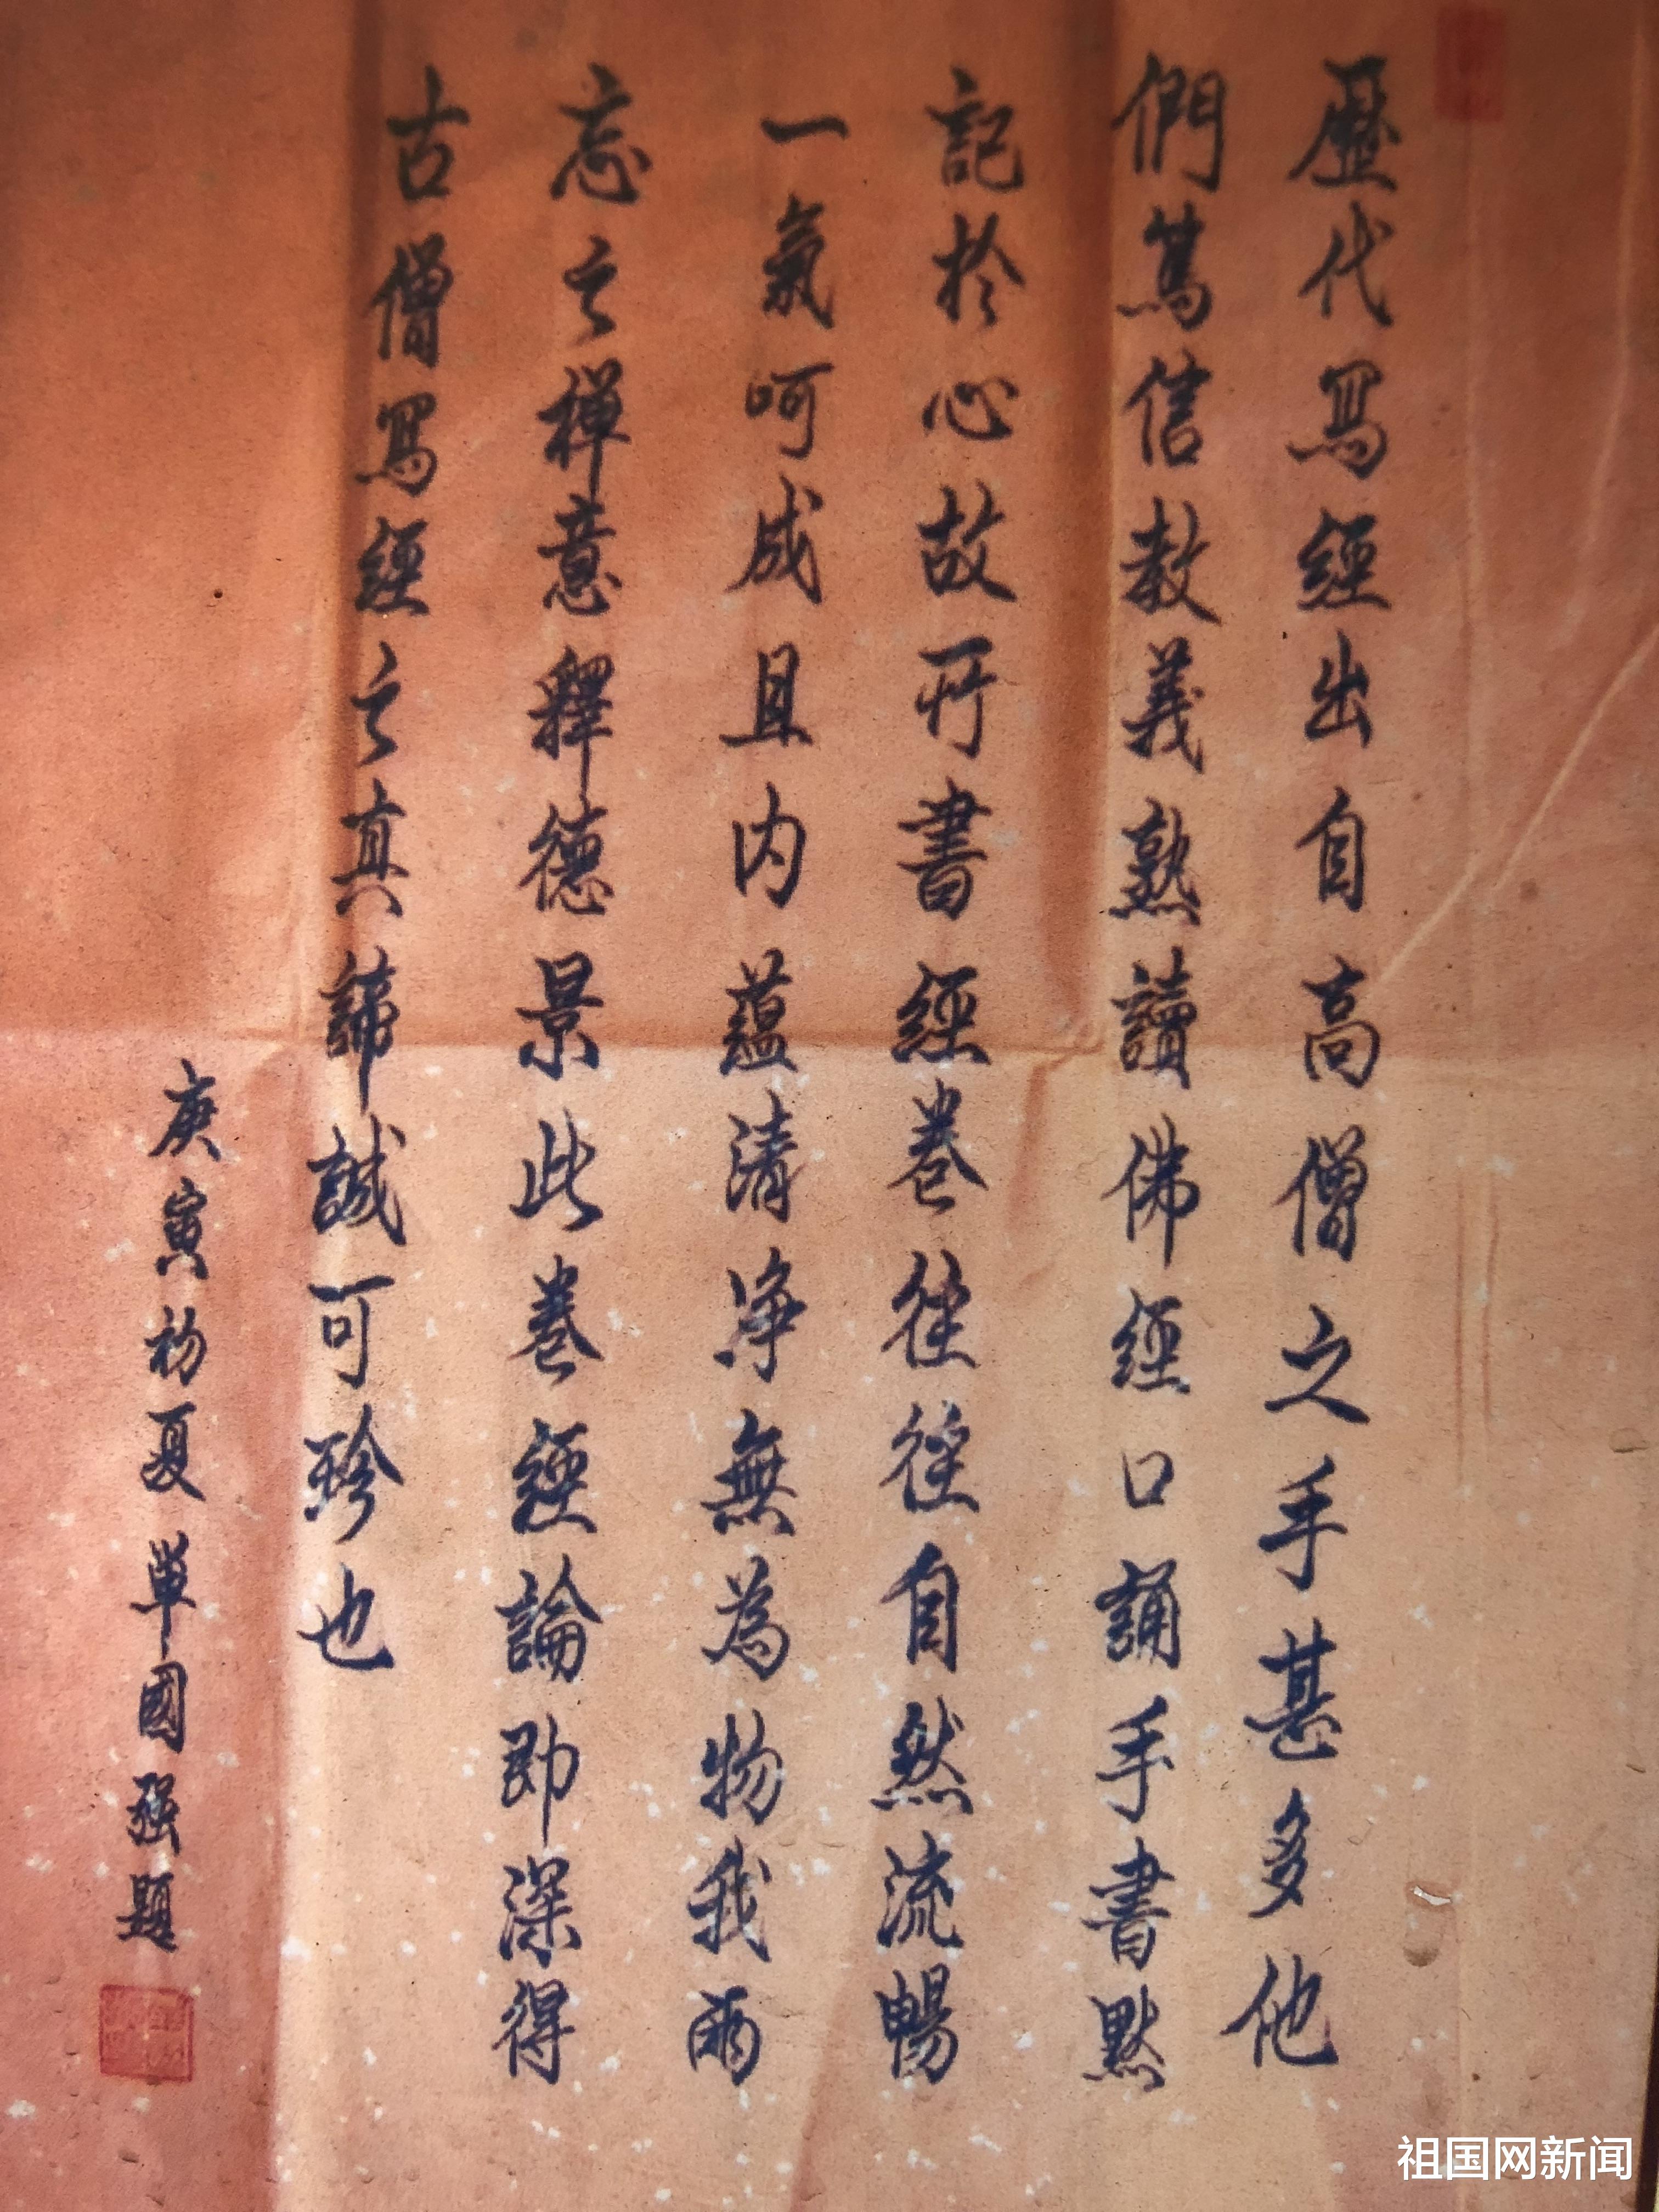 歷代寫經出自高僧之手甚多他
們篤信教義熟讀佛經口誦手書默
記於心故所書經卷往往自然流暢
一氣呵成且内蘊清净無為物我兩
忘之禅意釋德景此卷經論即深得
古僧寫經之真諦誠可珍也
庚寅初夏單國强題
祖国网新闻